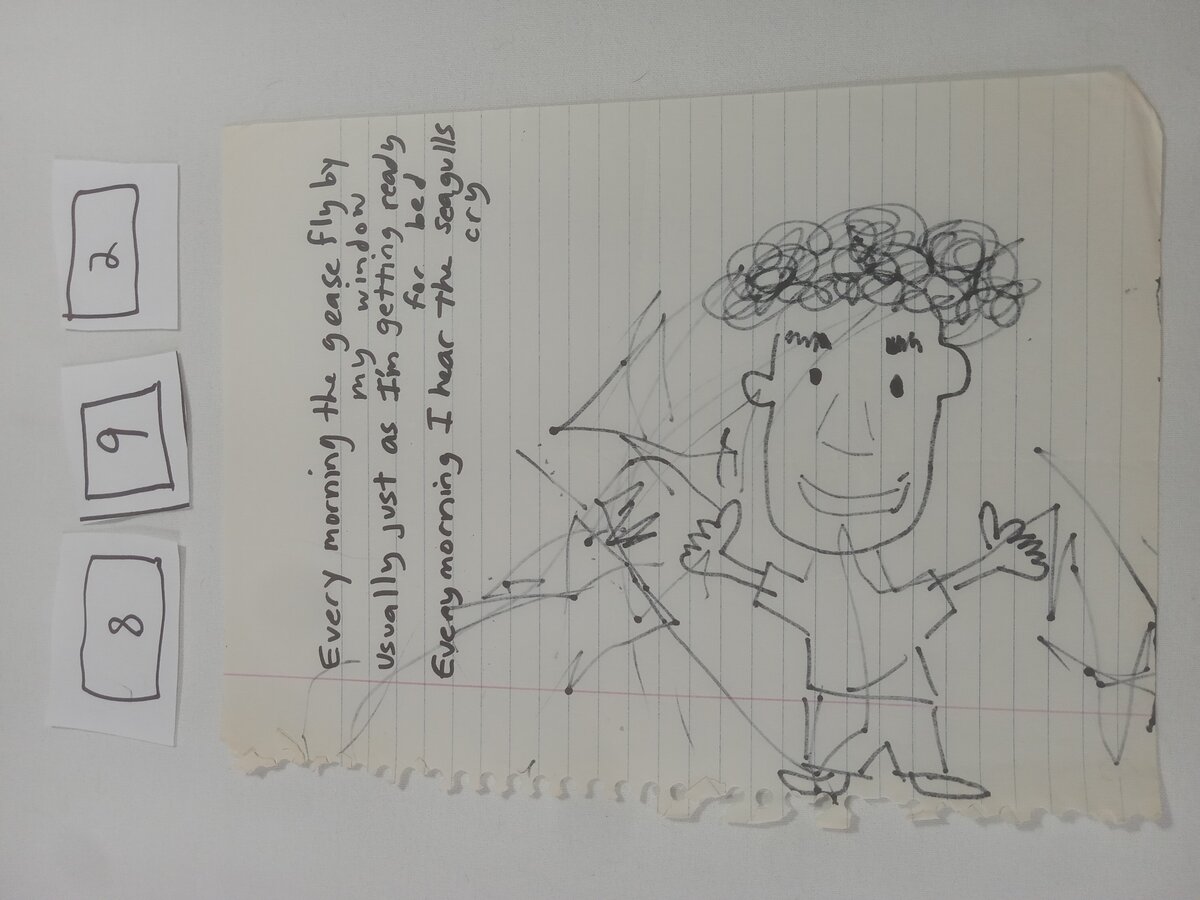 8 9 2
Every morning the gease fly by
my window
Usually just as I'm getting ready
for bed
Every morning I hear the seagulls
cry